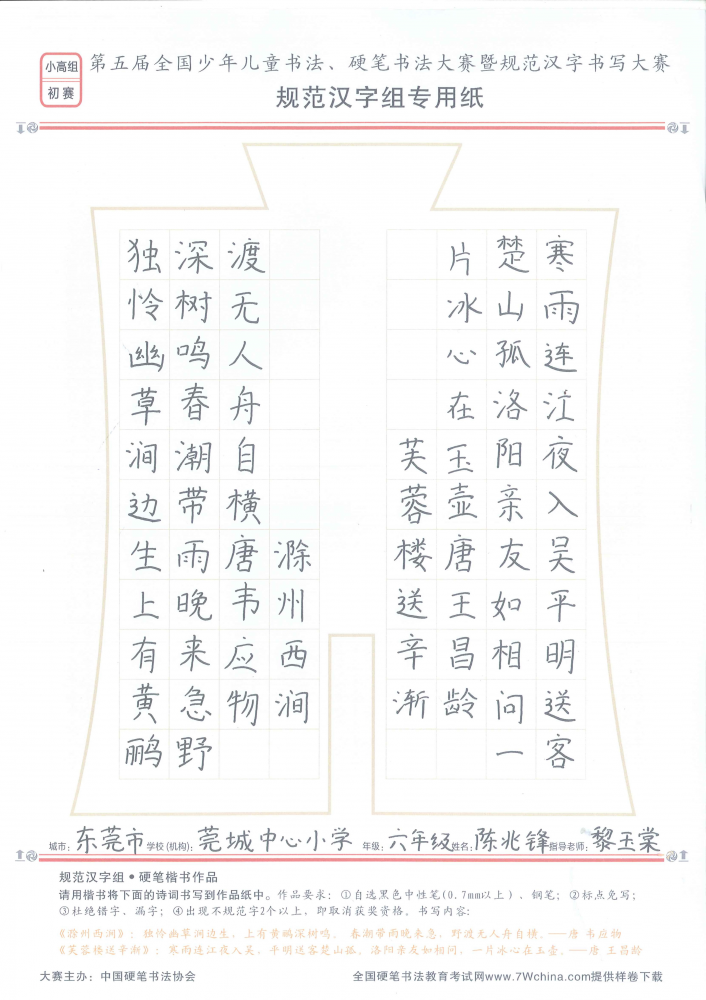 小高组
初赛
第五届全国少年儿童书法、硬笔书法大赛暨规范汉字书写大赛
规范汉字组专用纸
寒雨连江夜入吴平明送客
楚山孤洛阳亲友如相问一
片冰心在玉壶唐王昌龄
芙蓉楼送辛渐
独怜幽草涧边生上有黄鹂
深树鸣春潮带雨晚来急野
渡无人舟自横唐韦应物
滁州西涧
城市：东莞市学校(机构)：莞城中心小学 年级：六年级姓名：陈兆锋指导老师：黎玉棠
规范汉字组•硬笔楷书作品
请用楷书将下面的诗词书写到作品纸中。作品要求：①自选黑色中性笔(0.7mm以上)、钢笔；②标点免写；
③杜绝错字、漏字；④出现不规范字2个以上，即取消获奖资格。书写内容：
《滁州西涧》：独怜幽草涧边生，上有黄鹂深树鸣。春潮带雨晚来急，野渡无人舟自横。——唐 韦应物
《芙蓉楼送辛渐》：寒雨连江夜入吴，平明送客楚山孤。洛阳亲友如相问，一片冰心在玉壶。——唐 王昌龄
大赛主办：中国硬笔书法协会 全国硬笔书法教育考试网www.7Wchina.com提供样卷下载